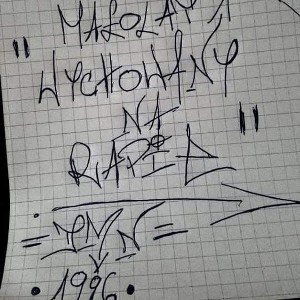 MAŁOLAT
"WYCHOWANY
NA
RAPIE"
1996